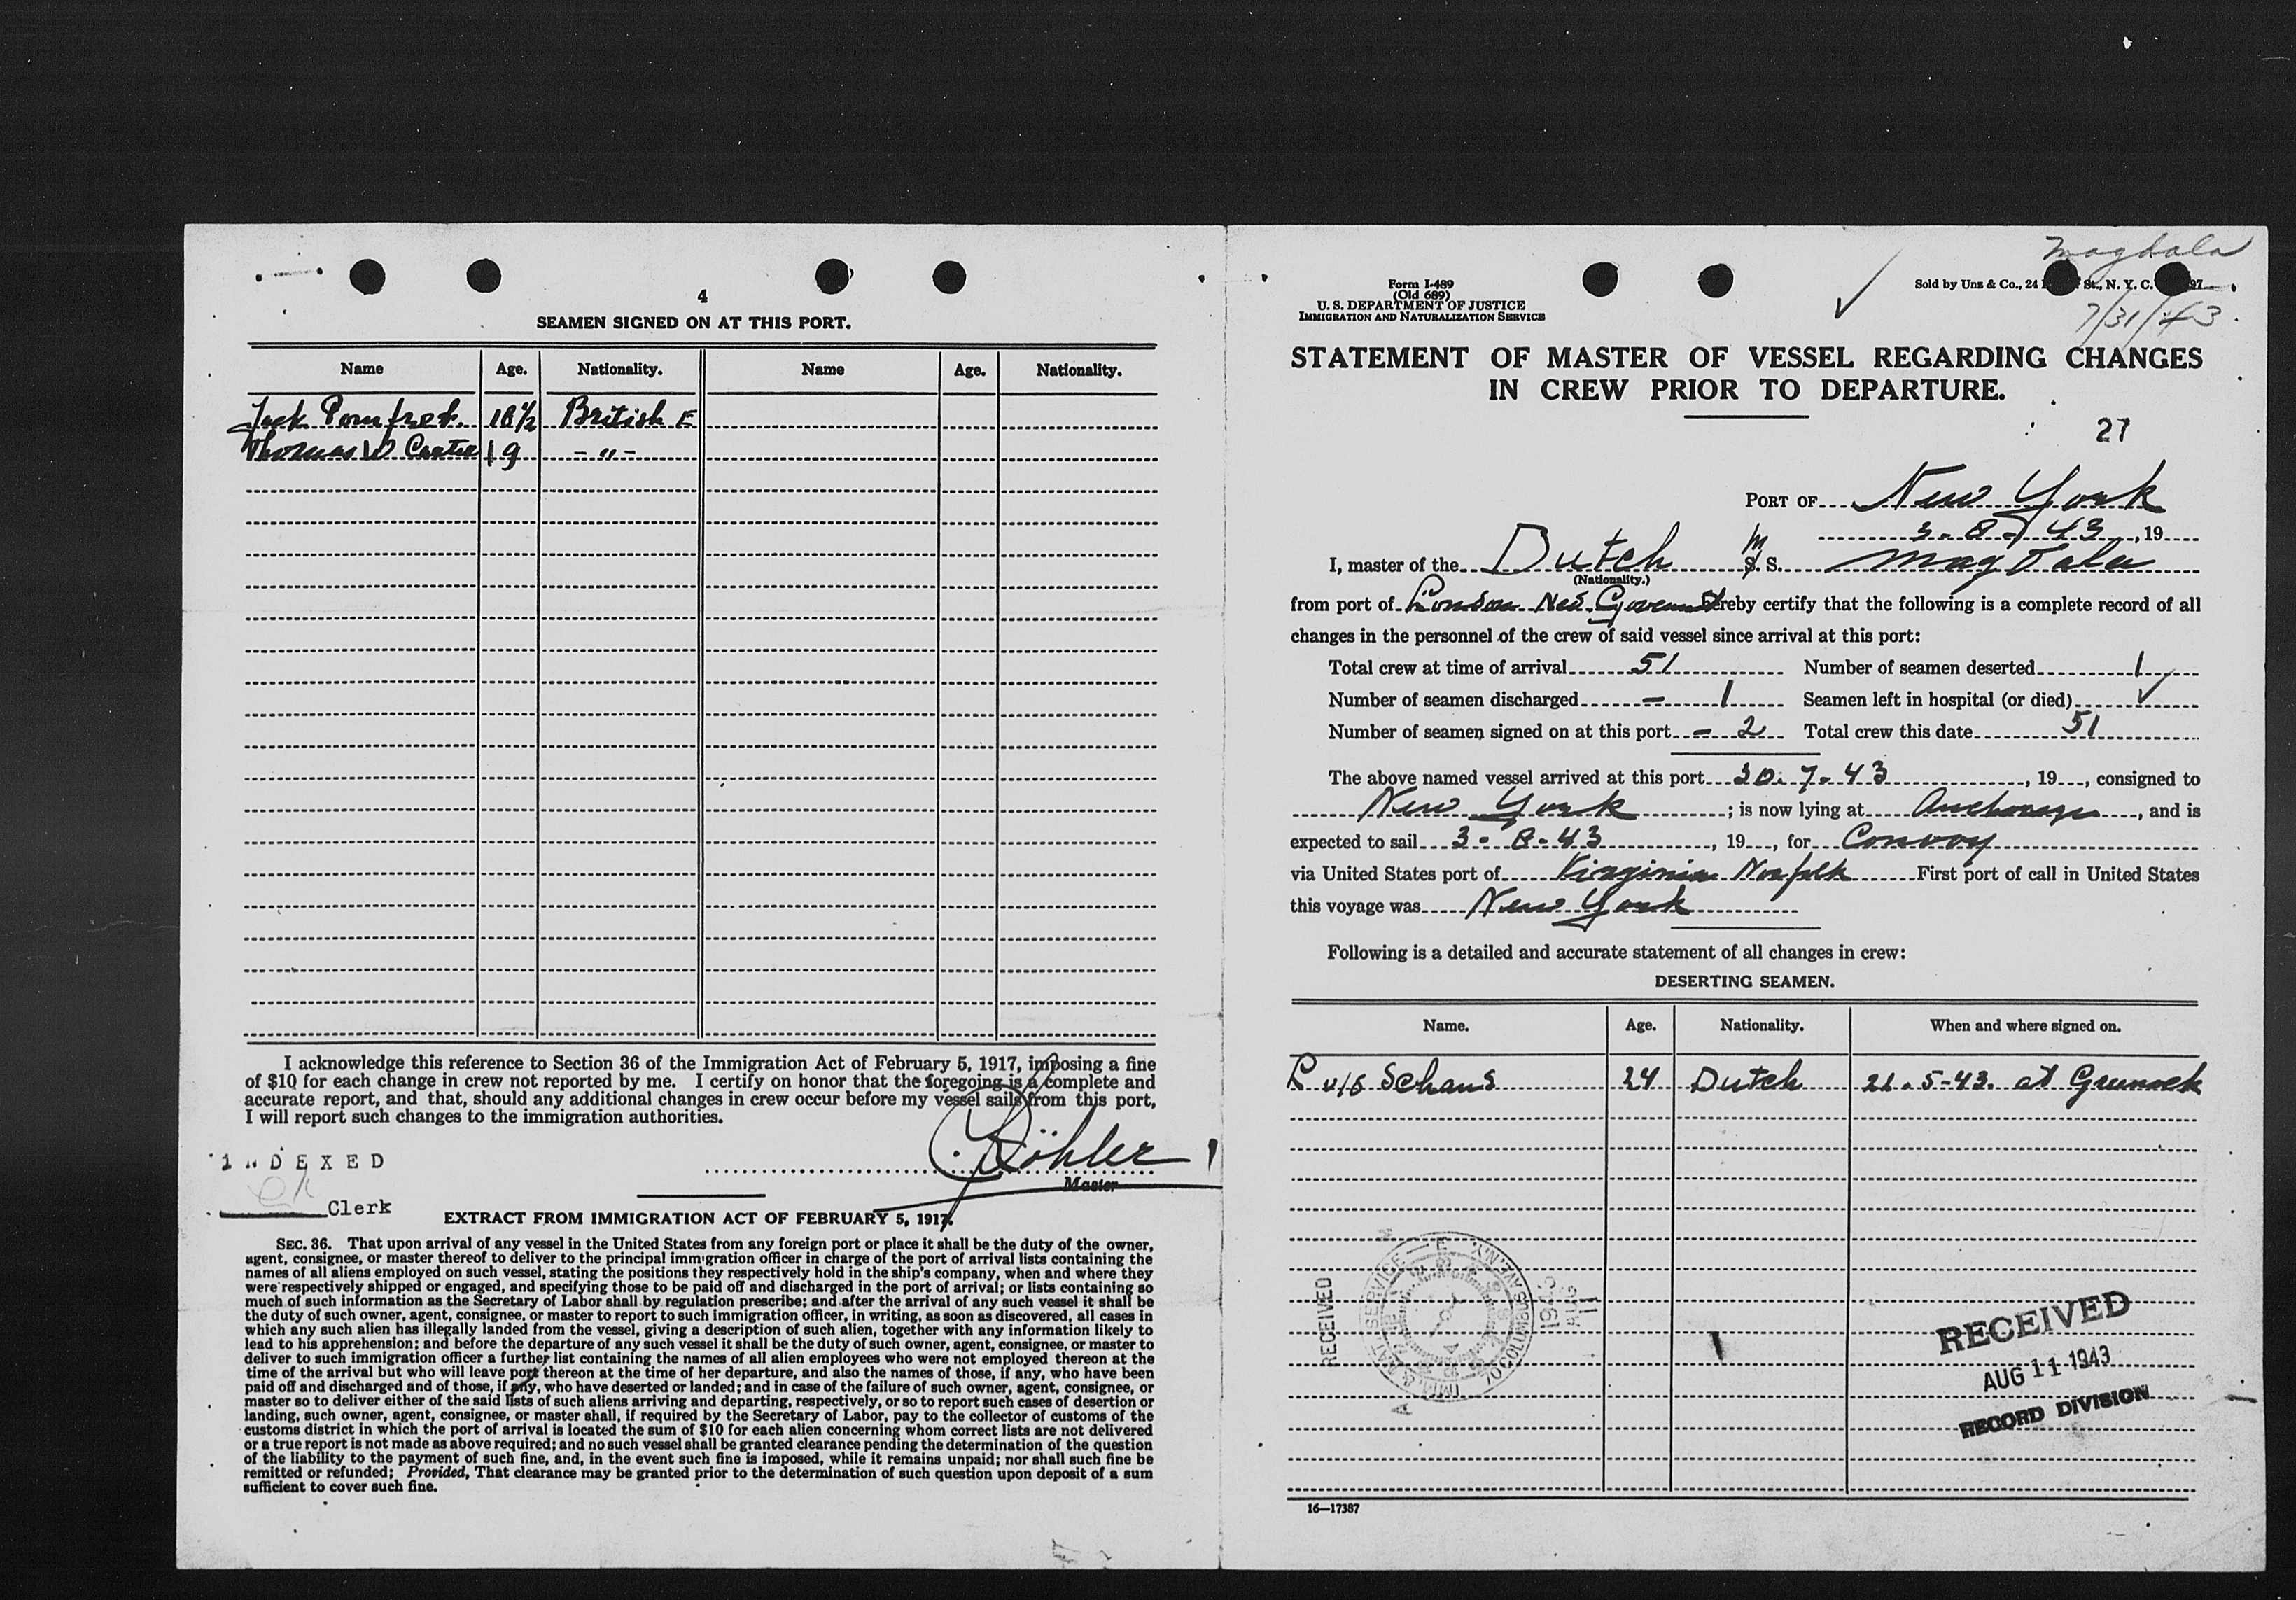 4
SEAMEN SIGNED ON AT THIS PORT.
Name Age. Nationality. Name Age. Nationality.
Jack Pomfret. 18½ British E
Thomas W Carter 19 - " -
I acknowledge this reference to Section 36 of the Immigration Act of February 5, 1917, imposing a fine
of $10 for each change in crew not reported by me. I certify on honor that the foregoing is a complete and
accurate report, and that, should any additional changes in crew occur before my vessel sails from this port,
I will report such changes to the immigration authorities.
INDEXED
Köhler
Master
Clerk
EXTRACT FROM IMMIGRATION ACT OF FEBRUARY 5, 1917.
SEC. 36. That upon arrival of any vessel in the United States from any foreign port or place it shall be the duty of the owner,
agent, consignee, or master thereof to deliver to the principal immigration officer in charge of the port of arrival lists containing the
names of all aliens employed on such vessel, stating the positions they respectively hold in the ship's company, when and where they
were respectively shipped or engaged, and specifying those to be paid off and discharged in the port of arrival; or lists containing so
much of such information as the Secretary of Labor shall by regulation prescribe; and after the arrival of any such vessel it shall be
the duty of such owner, agent, consignee, or master to report to such immigration officer, in writing, as soon as discovered, all cases in
which any such alien has illegally landed from the vessel, giving a description of such alien, together with any information likely to
lead to his apprehension; and before the departure of any such vessel it shall be the duty of such owner, agent, consignee, or master to
deliver to such immigration officer a further list containing the names of all alien employees who were not employed thereon at the
time of the arrival but who will leave port thereon at the time of her departure, and also the names of those, if any, who have been
paid off and discharged and of those, if any, who have deserted or landed; and in case of the failure of such owner, agent, consignee, or
master so to deliver either of the said lists of such aliens arriving and departing, respectively, or so to report such cases of desertion or
landing, such owner, agent, consignee, or master shall, if required by the Secretary of Labor, pay to the collector of customs of the
customs district in which the port of arrival is located the sum of $10 for each alien concerning whom correct lists are not delivered
or a true report is not made as above required; and no such vessel shall be granted clearance pending the determination of the question
of the liability to the payment of such fine, and, in the event such fine is imposed, while it remains unpaid; nor shall such fine be
remitted or refunded; Provided, That clearance may be granted prior to the determination of such question upon deposit of a sum
sufficient to cover such fine.
Magdala
Form I-489
(Old 689)
U. S. DEPARTMENT OF JUSTICE
IMMIGRATION AND NATURALIZATION SERVICE
Sold by Unz & Co., 24 St., N. Y. C.
7/31/43
STATEMENT OF MASTER OF VESSEL REGARDING CHANGES
IN CREW PRIOR TO DEPARTURE.
27
PORT OF New York
3-8-43, 19
I, master of the Dutch M S. S. Magdala
(Nationality.)
from port of London Ned. Governmt hereby certify that the following is a complete record of all
changes in the personnel of the crew of said vessel since arrival at this port:
Total crew at time of arrival 51 Number of seamen deserted 1
Number of seamen discharged - 1 Seamen left in hospital (or died) ✓
Number of seamen signed on at this port - 2 Total crew this date 51
The above named vessel arrived at this port 30-7-43, 19, consigned to
New York; is now lying at Anchorage, and is
expected to sail 3-8-43, 19, for Convoy
via United States port of Virginia Norfolk First port of call in United States
this voyage was New York
Following is a detailed and accurate statement of all changes in crew:
DESERTING SEAMEN.
Name. Age. Nationality. When and where signed on.
P v/d Schans 24 Dutch 21-5-43. at Greenock
RECEIVED
IMM. & NAT. SERVICE
70 COLUMBUS AVE. N.Y.
1943 AUG 11
RECEIVED
AUG 11 1943
RECORD DIVISION
16—17387